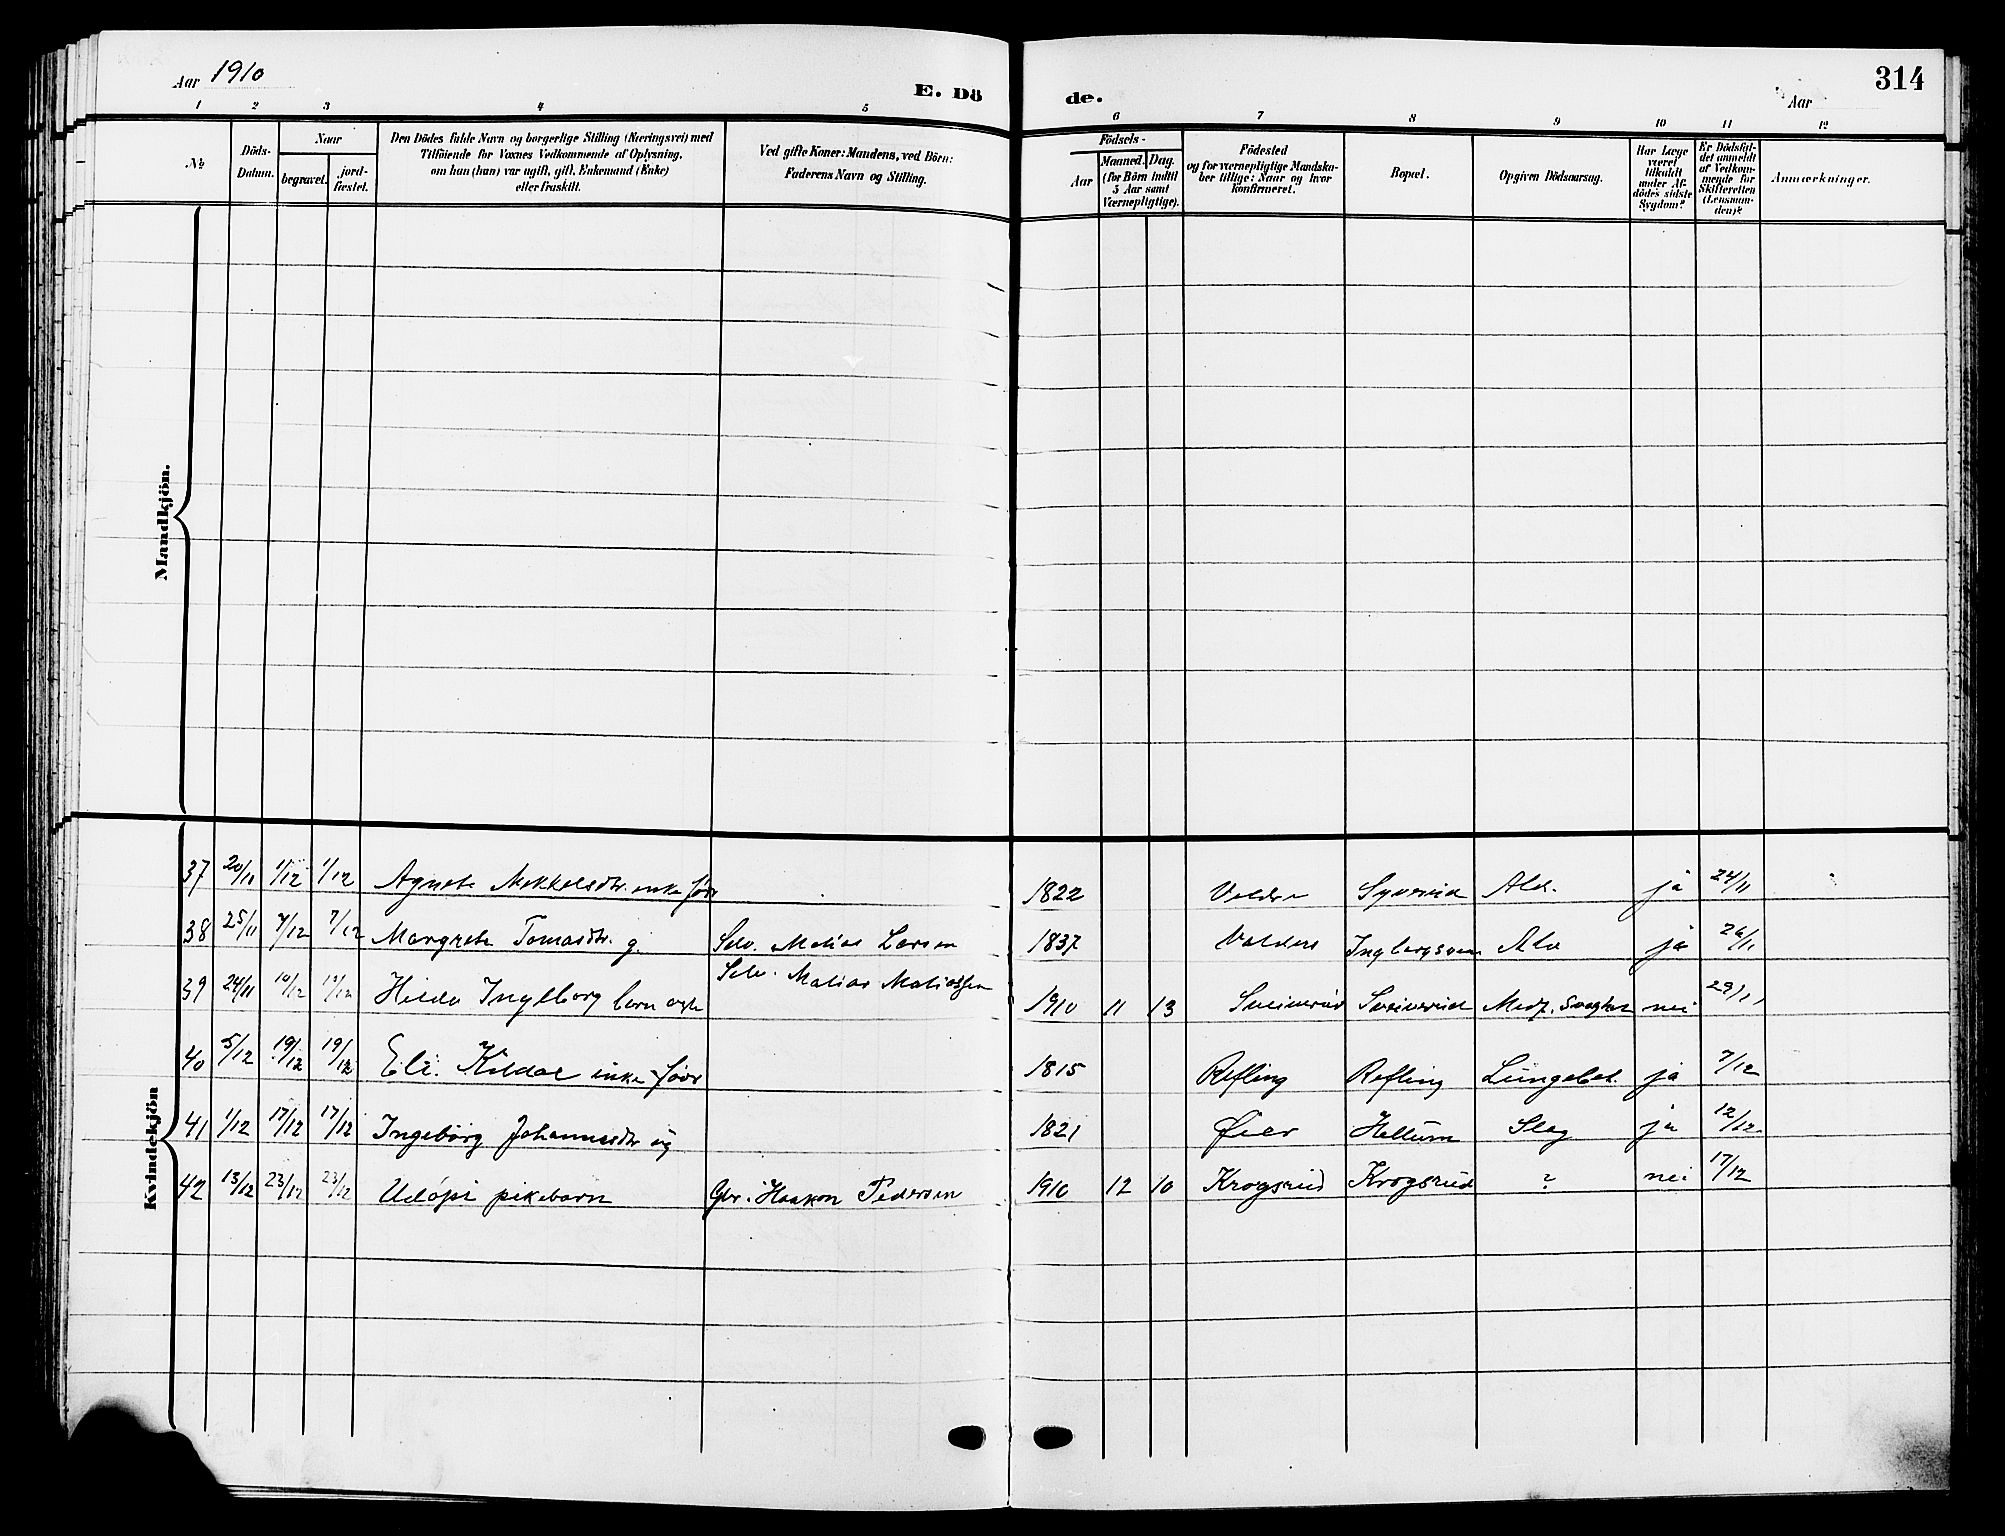 Aar 1910
E. Dö
de.
Aar
314
1 2 3 4 5 6 7 8 9 10 11 12
№
Döds-
Datum.
Naar
begravet.
jord-
fæstet.
Den Dödes fulde Navn og borgerlige Stilling (Næringsvei) med
Tilföiende for Voxnes Vedkommende af Oplysning,
om han (hun) var ugift, gift, Enkemand (Enke)
eller fraskilt.
Ved gifte Koner: Mandens, ved Börn:
Faderens Navn og Stilling.
Födsels-
Aar
Maaned. Dag.
(for Börn indtil
5 Aar samt
Værnepligtige).
Födested
og for værnepligtige Mandska-
ber tillige: Naar og hvor
konfirmeret.
Bopæl.
Opgiven Dödsaarsag.
Har Læge
været
tilkaldt
under Af-
dödes sidste
Sygdom?
Er Dödsfal-
det anmeldt
af Vedkom-
mende for
Skifteretten
(Lensman-
den)?
Anmærkninger.
Mandkjön.
Kvindekjön
37 20/11 1/12 1/12 Agnete Mikkelsdtr. enke förr 1822 Valdrs Syverud Ald. ja 24/11
38 25/11 7/12 7/12 Margrete Tomasdtr. g. Selv. Matias Larsen 1837 Valders Ald ja 26/11
39 24/11 10/12 Hilda Ingeborg barn Selv. Matias Matiassen 1910 11 13 Sveinerud Sveinerud Medf. Svaghet nei 29/11
40 5/12 19/12 19/12 Eli Kildal enke förr 1815 Refling Refling Lungebet. ja 7/12
41 1/12 17/12 17/12 Ingebörg Johannesdtr ug 1821 Öier Hellum Slag ja 12/12
42 13/12 23/12 23/12 Udöpt pikebarn Gbr. Haakon Pedersen 1910 12 10 Krogsrud Krogsrud ? nei 17/12